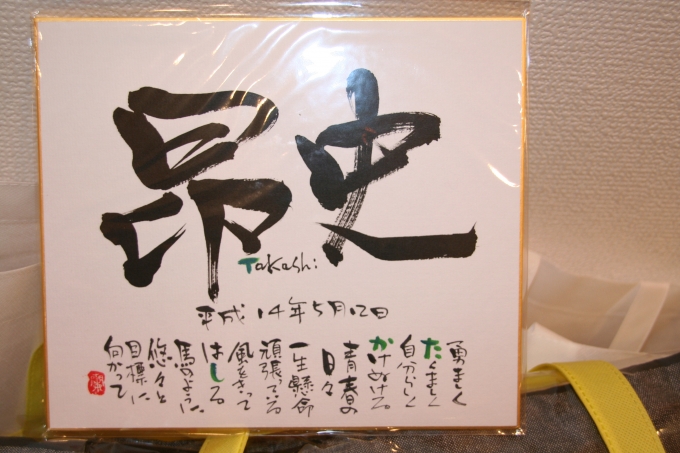 昴史
Takashi
平成14年5月12日
勇ましく
たくましく
自分らしく
かけぬける
青春の
日々
一生懸命
頑張っている
風をきって
はしる
馬のように
悠々と
目標に
向かって